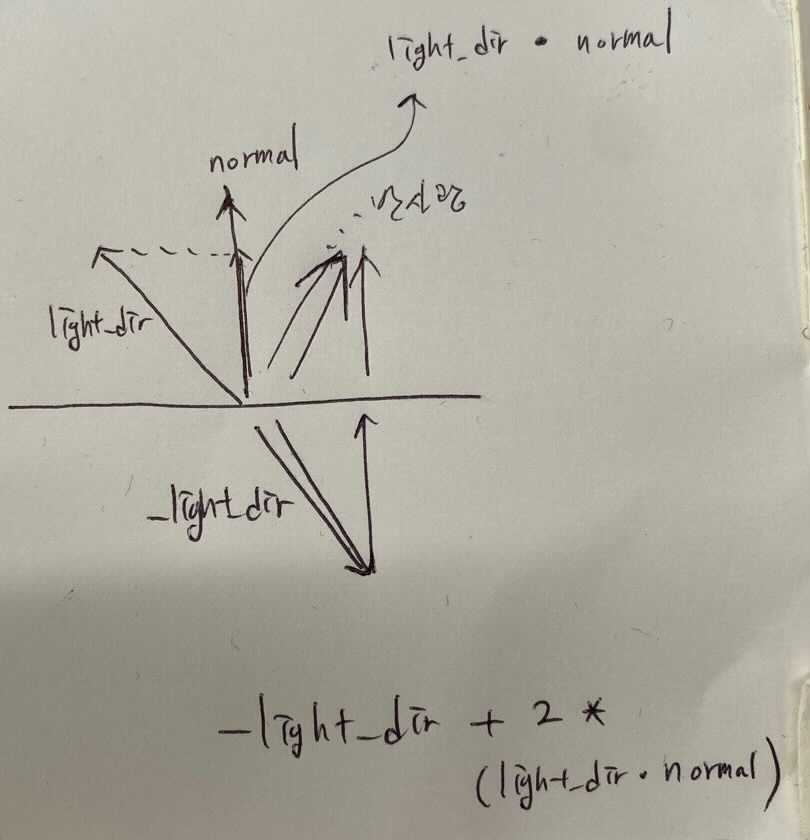 light_dir • normal
normal
반사광
light_dir
-light_dir
-light_dir + 2 *
(light_dir · normal)